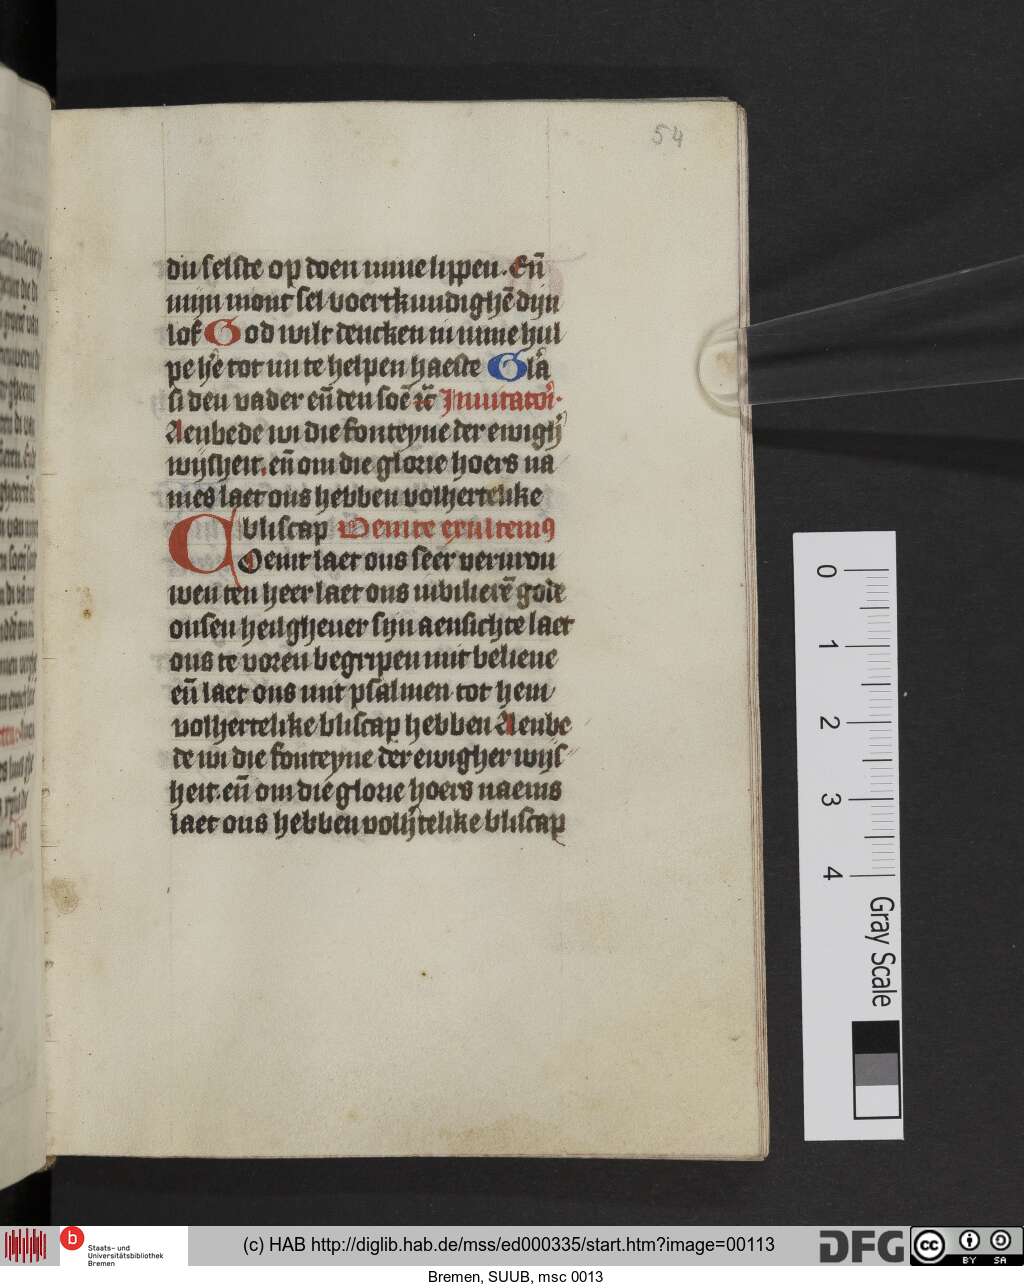 54
du selste op doen mine lippen. Eñ
mijn mont sel voertkundighē dijn
lof God wilt dencken in mine hul
pe hēr tot mi te helpen haeste Glā
si den vader eñ den soē ⁊c̄ Inuitatoī.
Aenbede wi die fonteyne der ewighͥ
wijsheit. eñ om die glorie hoers na
mes laet ons hebben volhertelike
bliscap Venite exultemꝰ
Coemt laet ons seer vervrou
wen den heer laet ons iubilierē gode
onsen heilghever sijn aensichte laet
ons te voren begripen mit beliene
eñ laet ons mit psalmen tot hem
volhertelike bliscap hebben Aenbe
de wi die fonteyne der ewigher wijs
heit. eñ om die glorie hoers naems
laet ons hebben volhͥtelike bliscap
0
1
2
3
4
Gray Scale
b Staats- und
Universitätsbibliothek
Bremen
(c) HAB http://diglib.hab.de/mss/ed000335/start.htm?image=00113
DFG
cc BY SA
Bremen, SUUB, msc 0013